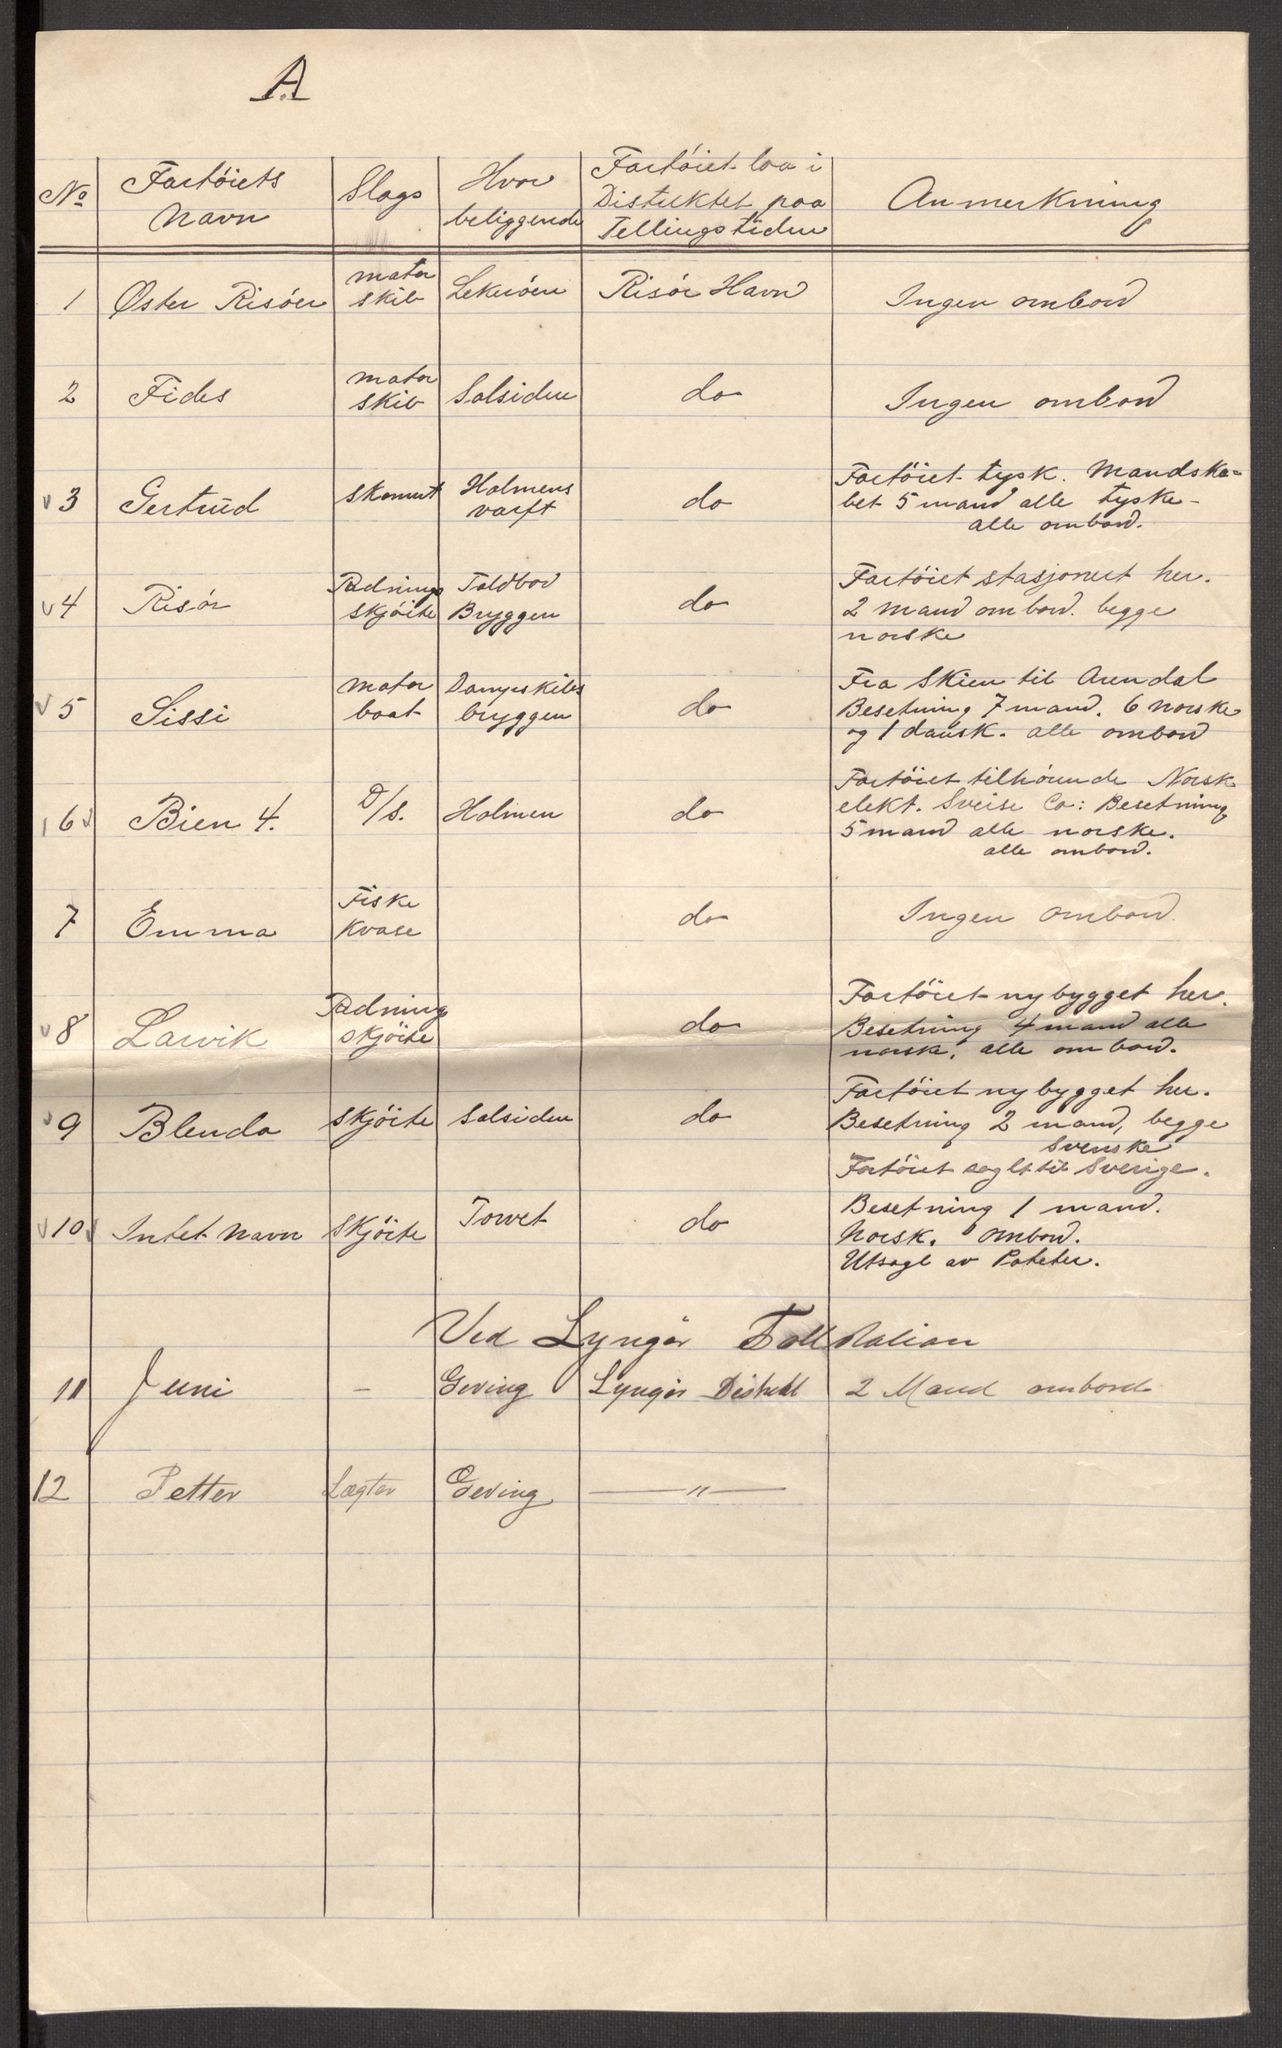 A
No | Fartöiets Navn | Slags | Hvor beliggende | Fartöiet laa i Distriktet paa Tellingstiden | Anmerkning
1 | Øster Risöer | motor skib | | Risör Havn | Ingen ombord
2 | Fides | motor skib | Solsiden | do | Ingen ombord
v 3 | Gertrud | skonnert | Holmens varft | do | Fartöiet tysk. Mandska-
bet 5 mand alle tyske -
alle ombord.
v 4 | Risör | Rednings skjöite | Toldbod Bryggen | do | Fartöiet stasjonert her.
2 mand ombord. begge
norske
v 5 | Sissi | motor baat | Dampskibs bryggen | do | Fra Skien til Arendal
Besetning 7 mand. 6 norske
og 1 dansk. alle ombord
6 v | Bien 4. | D/S. | Holmen | do | Fartöiet tilhörende Norsk
elekt. Sveise Co: Besetning
5 mand alle norske.
alle ombord.
7 | Emma | Fiske Kvase | | do | Ingen ombord.
v 8 | Larvik | Redning skjöite | | do | Fartöiet nybygget her.
Besetning 4 mand alle
norske. alle ombord.
v 9 | Blenda | skjöite | Solsiden | do | Fartöiet nybygget her.
Besetning 2 mand, begge
Svenske
Fartöiet solgt til Sverige.
v 10 v | Intet navn | skjöite | Torvet | do | Besetning 1 mand.
Norsk. ombord.
Utsalg av Poteter.
Ved Lyngör Tollstation
11 | Juni | - | Geving | Lyngör Distrikt | 2 Mand ombord
12 | Petter | Lægter | Geving | — " —